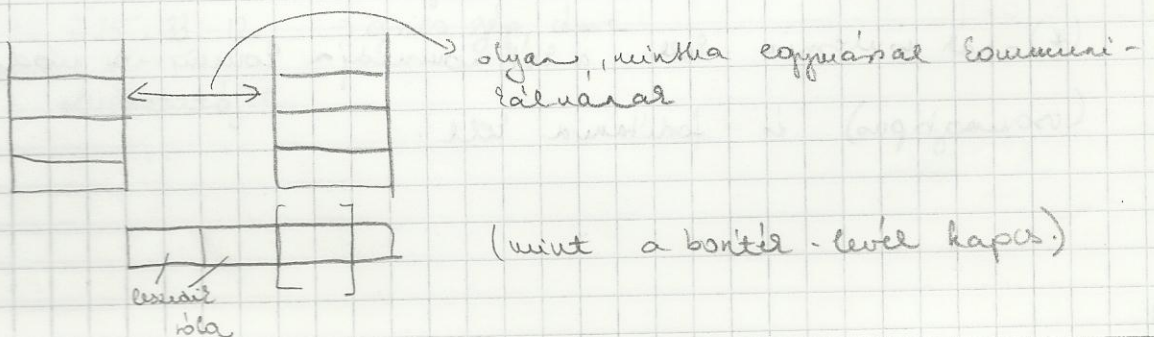 olyan, mintha egymással kommuni-
kálnának
(mint a boríték-levél kapcs.)
leszedik
róla